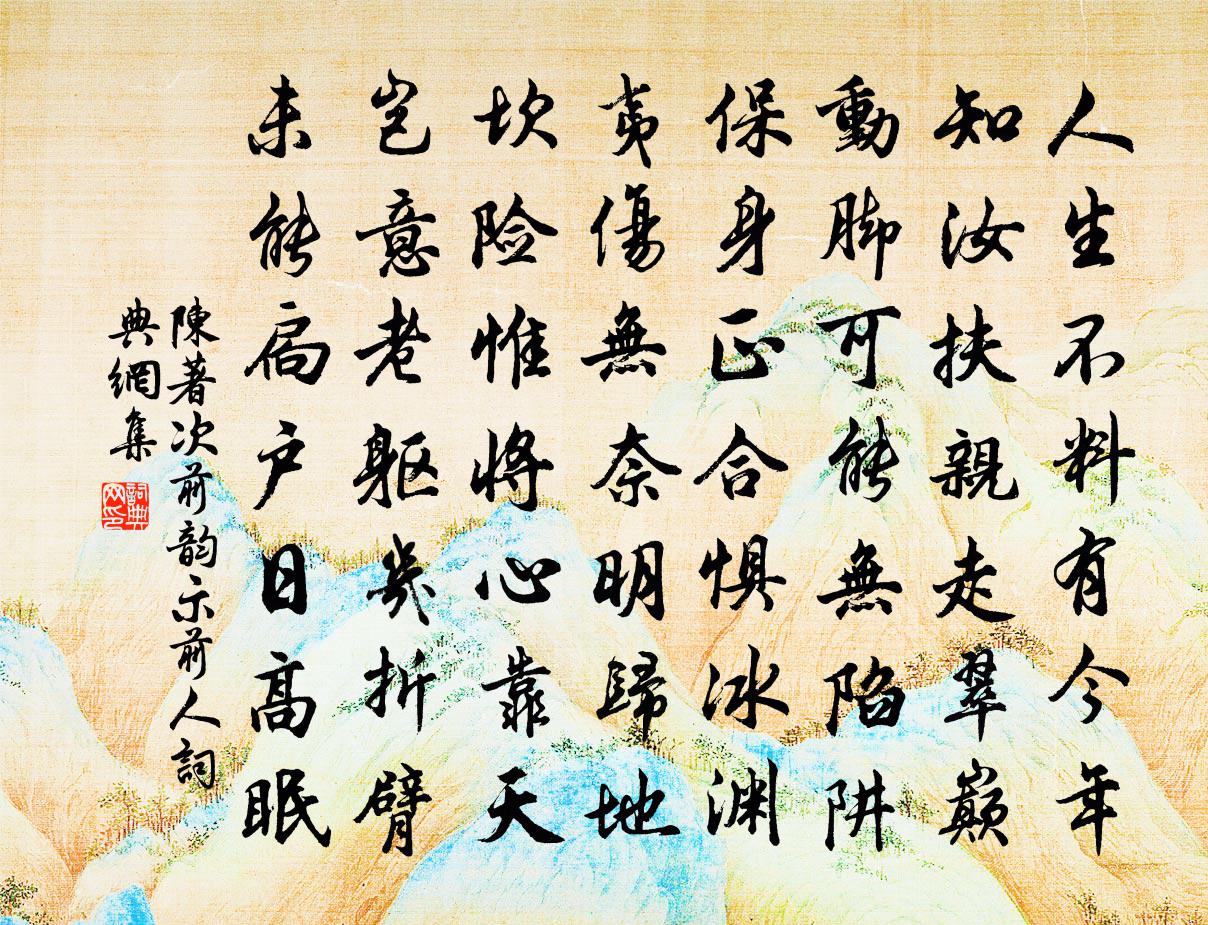 人生不料有今年
知汝扶親走翠巔
動脚可能無陷阱
保身正合惧冰渊
夷傷無奈明歸地
坎险惟將心靠天
岂意老躯幾折臂
未能扃户日高眠
陳著次前韵示前人詞
典網集
詞典
网印